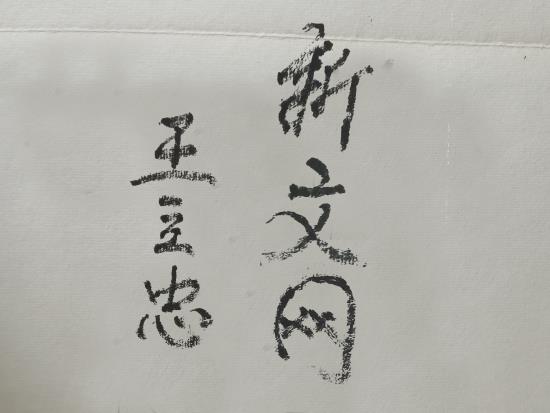 新文网
王立忠